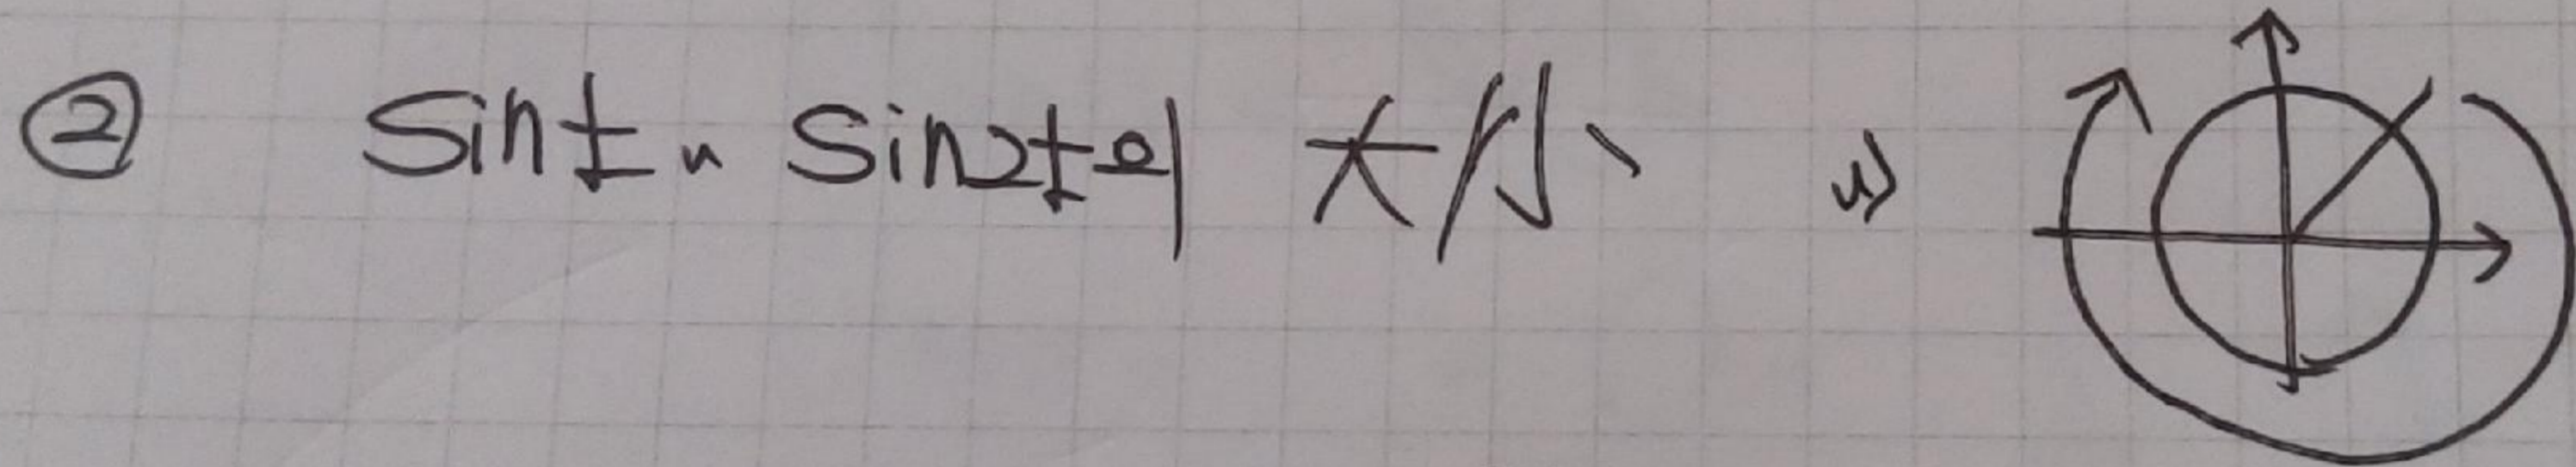 ② sint, sin2t의 大/小 ⇒